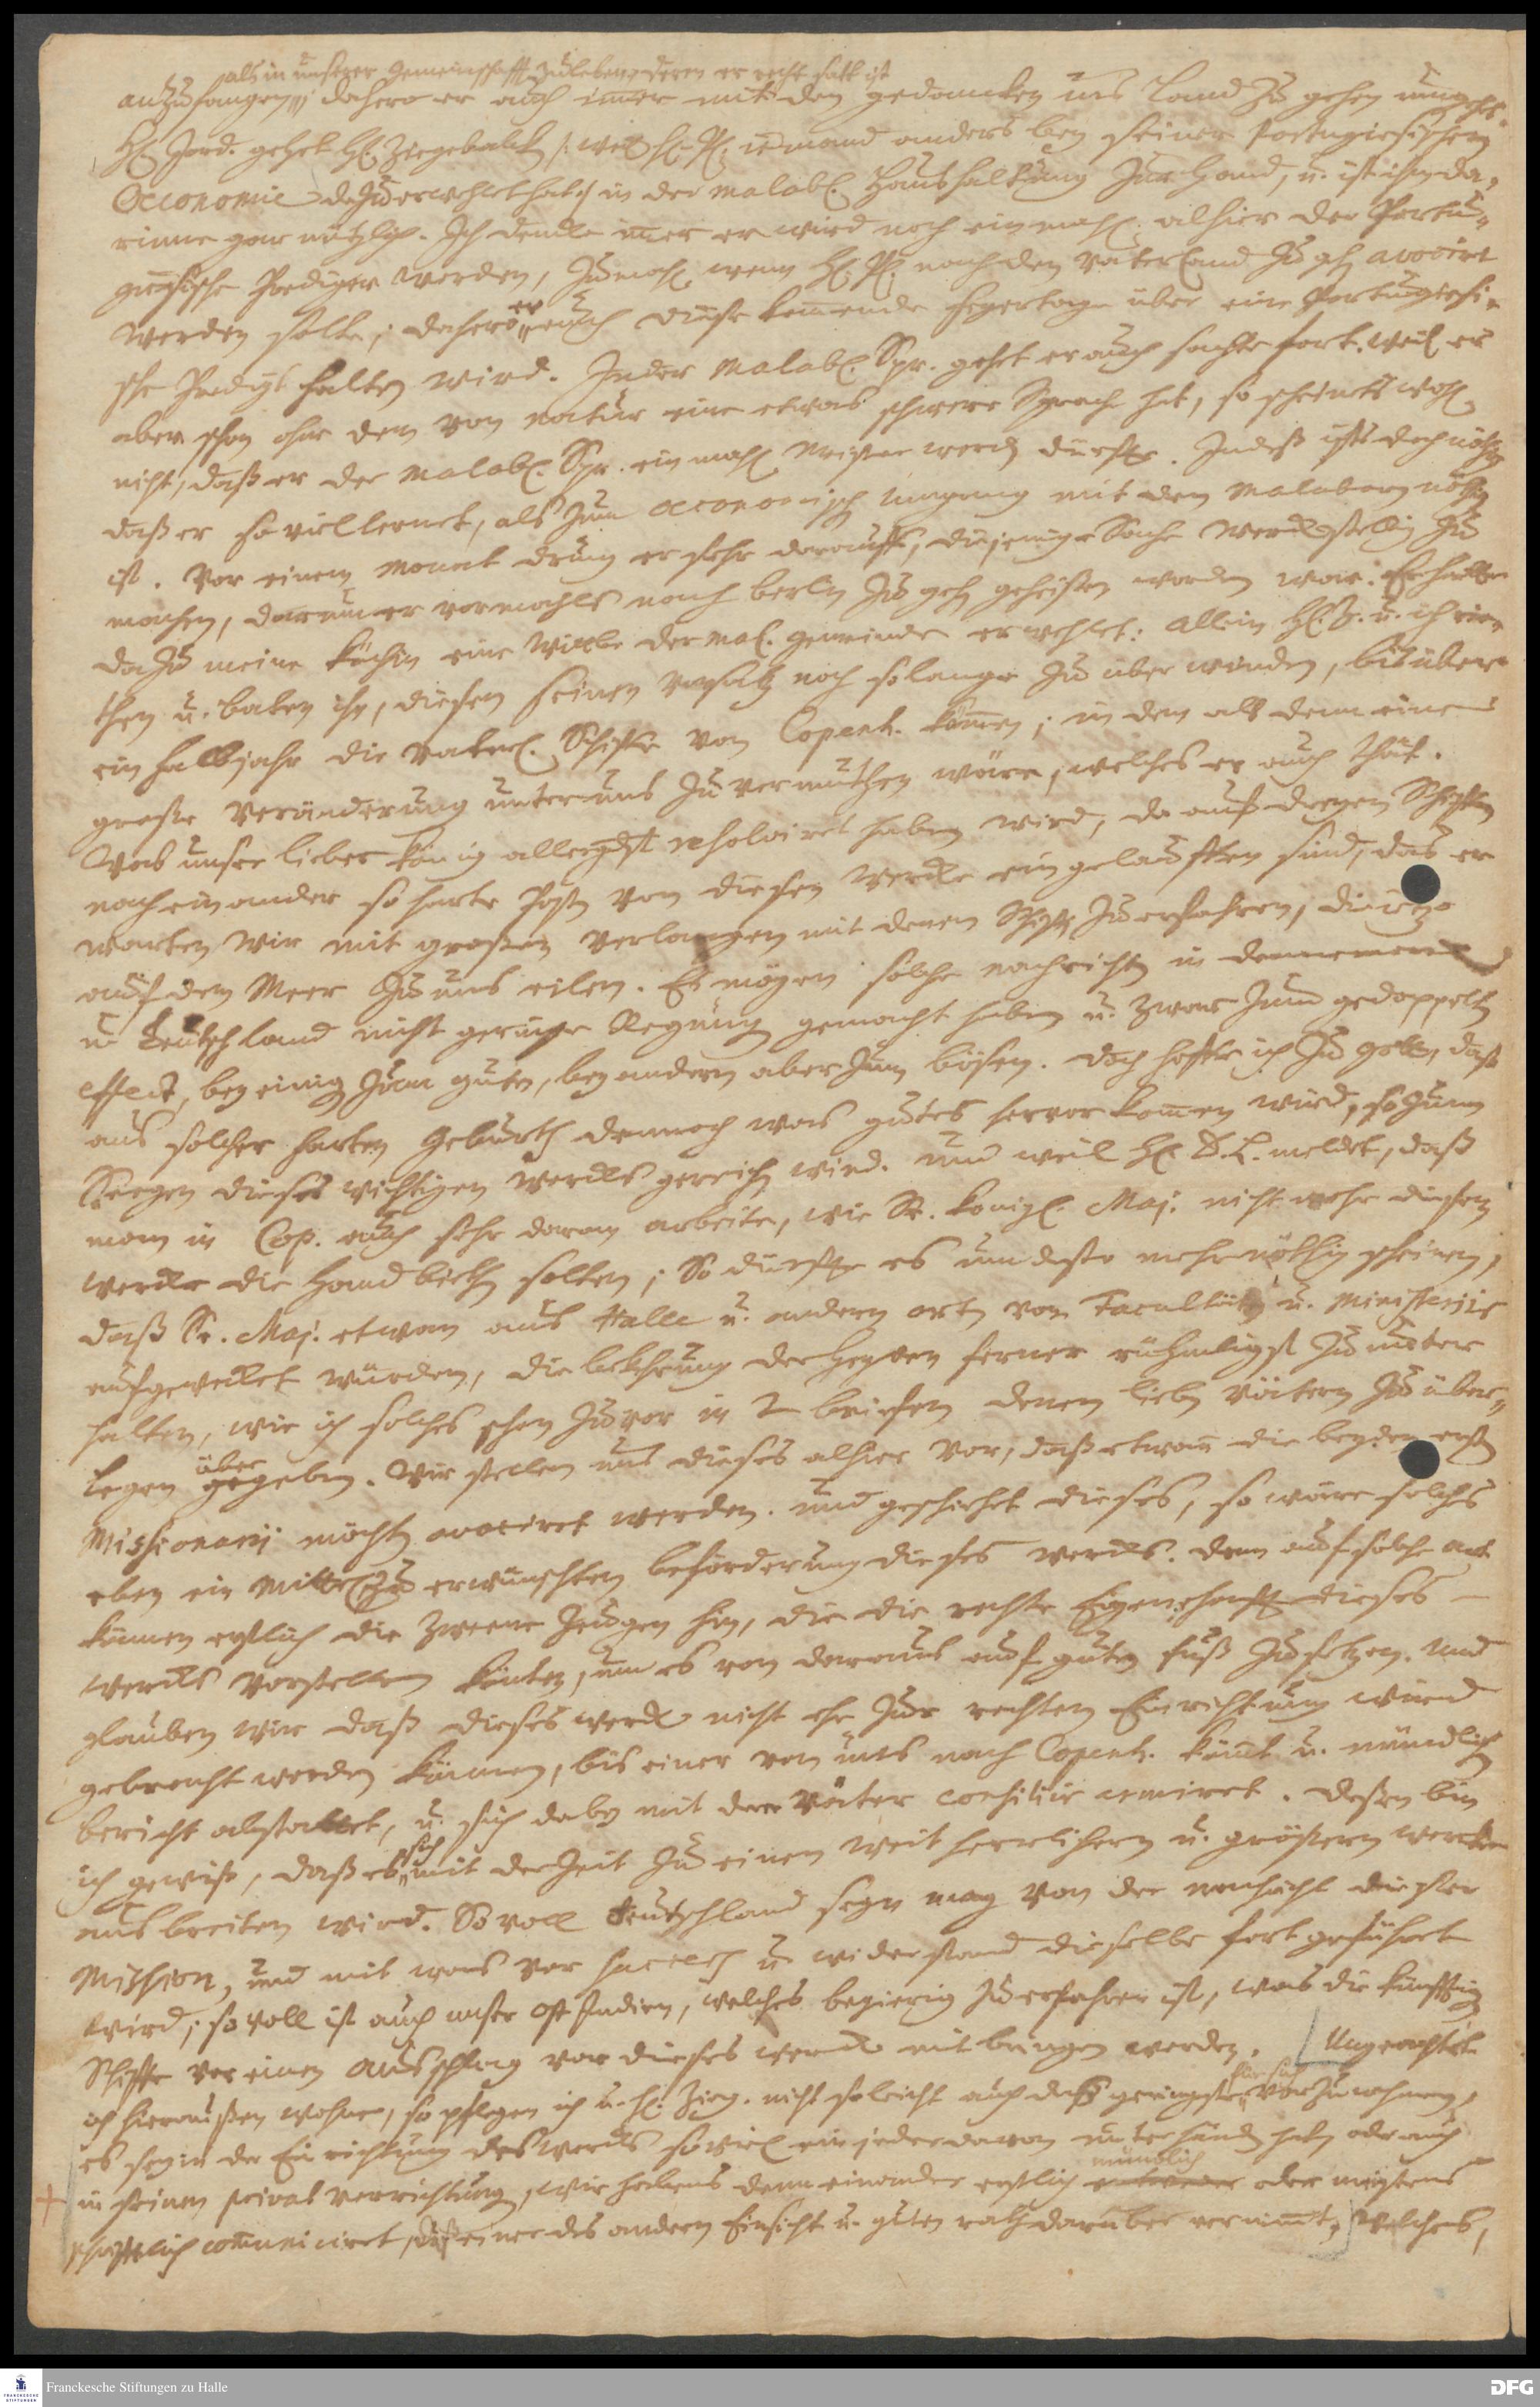 als in unserer Gemeinschafft zu leben, deren er recht satt ist
anzufangen, dahero er auch immer mit den gedancken ins Land zu gehen umgehet.
H. Jord. gehet H. Ziegenbalg /: weil H. Pl. iemand anders bey seiner Portugiesischen
Oeconomie dazu erwehlet hat :/ in der Malab. Haushaltung zur Hand, u. ist ihm da-
rinne gar nützlich. Ich dencke immer er wird noch einmahl alhier der Portu-
giesische Prediger werden, zumahl wenn H. Pl. nach dem Vaterland zu gehen avociret
werden solte; dahero er auch diese kommende Feyertage über eine Portugiesi-
sche Predigt halten wird. In der Malab. Spr. gehet er auch sachte fort. weil er
aber schon ohne dem von natur eine etwas schwere Sprache hat, so scheinets wohl
nicht, daß er der Malab. Spr. einmahl Meister werden dürffte. Indeß ists doch nöthig
daß er so viel lernet, als zum oeconomischen umgang mit den Malabaren nöthig
ist. Vor einem Monat drung er sehr darauff, diejenige Sache werckstellig zu
machen, darum er vormahls nach Berlin zu gehen geheißen worden war: Er hatte
dazu meine Köchin eine Wittbe der Mal. gemeinde erwehlet: Allein H. Z. u. ich rie-
then u. baten ihn, diesen seinen Vorsatz noch so lange zu überwinden, bis über
ein halb jahr die Vaterl. Schiffe von Copenh. kämen; in dem alsdenn eine
große Veränderung unter uns zu vermuthen wäre, welches er auch that.
Was unser lieber König allergdst resolviret haben wird, da auf dreyen Schiffen
nach einander so harte Post von diesem Wercke eingelauffen sind, das er-
warten wir mit großem Verlangen mit denen Schiffen zu erfahren, die ietzo
auf dem Meer zu uns eilen. Es mögen solche nachrichten in Dennemarck
u. Teutschland nicht geringe Regung gemacht haben u. zwar zum gedoppelten
effect, bey einigen zum guten, bey andern aber zum bösen. Doch hoffe ich zu Gott, daß
aus solcher harten Geburth dennoch was gutes hervor kommen wird, so zum
Seegen dieses wichtigen Wercks gereichen wird. Und weil H. D. L. meldet, daß
man in Cop. auch sehr daran arbeite, wie Sr. Königl. Maj. nicht mehr diesem
Wercke die Hand biethen solten; So dürffte es um desto mehr nöthig scheinen,
daß Sr. Maj. etwan aus Halle u. andern orten von Facultäten u. Ministeriis
aufgewecket würden, die bekehrung der Heyden ferner rühmligst zu unter-
halten, wie ich solches schon zuvor in 2 briefen denen lieben Vätern zu über-
legen übergeben. Wir stellen uns dieses alhier vor, daß etwann die beyden ersten
Missionarii möchten avociret werden. Und geschiehet dieses, so wäre solches
eben ein Mittel zu erwünschter beförderung dieses Wercks. Denn auf solche art
kämen erstlich die zweene Zeugen hin, die die rechte Eigenschafft dieses
Wercks vorstellen könten, um es von daraus auf guten fuß zu setzen. Und
glauben wir daß dieses Werck nicht ehe zur rechten Einrichtung wird
gebracht werden können, bis einer von uns nach Copenh. kömt u. mündlich
bericht abstattet, u. sich dabey mit der Väter consiliis armiret. Deßen bin
ich gewiß, daß es sich mit der Zeit zu einem weit herrlichern u. größern Wercke
ausbreiten wird. So voll Teutschland seyn mag von der nachricht dieser
Mission, und mit was vor success u. widerstand dieselbe fortgeführet
wird; so voll ist auch unser Ost Indien, welches begierig zu erfahren ist, was die künfftigen
Schiffe vor einen Ausschlag vor dieses Werck mitbringen werden. Ungeachtet
ich hieraußen wohne, so pflegen ich u. H. Zieg. nicht so leicht auch das geringste für sich vorzunehmen,
es sey in der Einrichtung des Wercks so viel ein ieder davon unter händen hat, oder auch
in seinen privat verrichtung, wir habens denn einander erstlich mündlich oder meistens
schrifftlich communiciret, daß einer des andern Einsicht u. guten rath darüber vernimmt, welches,
Franckesche Stiftungen zu Halle
DFG